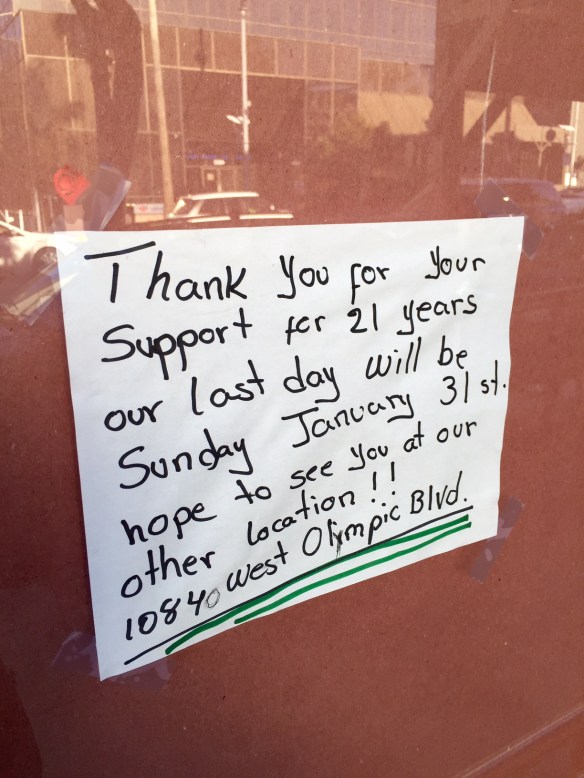 Thank You for Your
Support for 21 years
our last day will be
Sunday January 31st.
hope to see You at our
other location!!
10840 West Olympic Blvd.